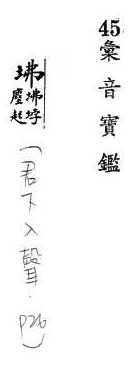 45彙音寶鑑
坲
坲垺
塵起
(君下入聲．P26)